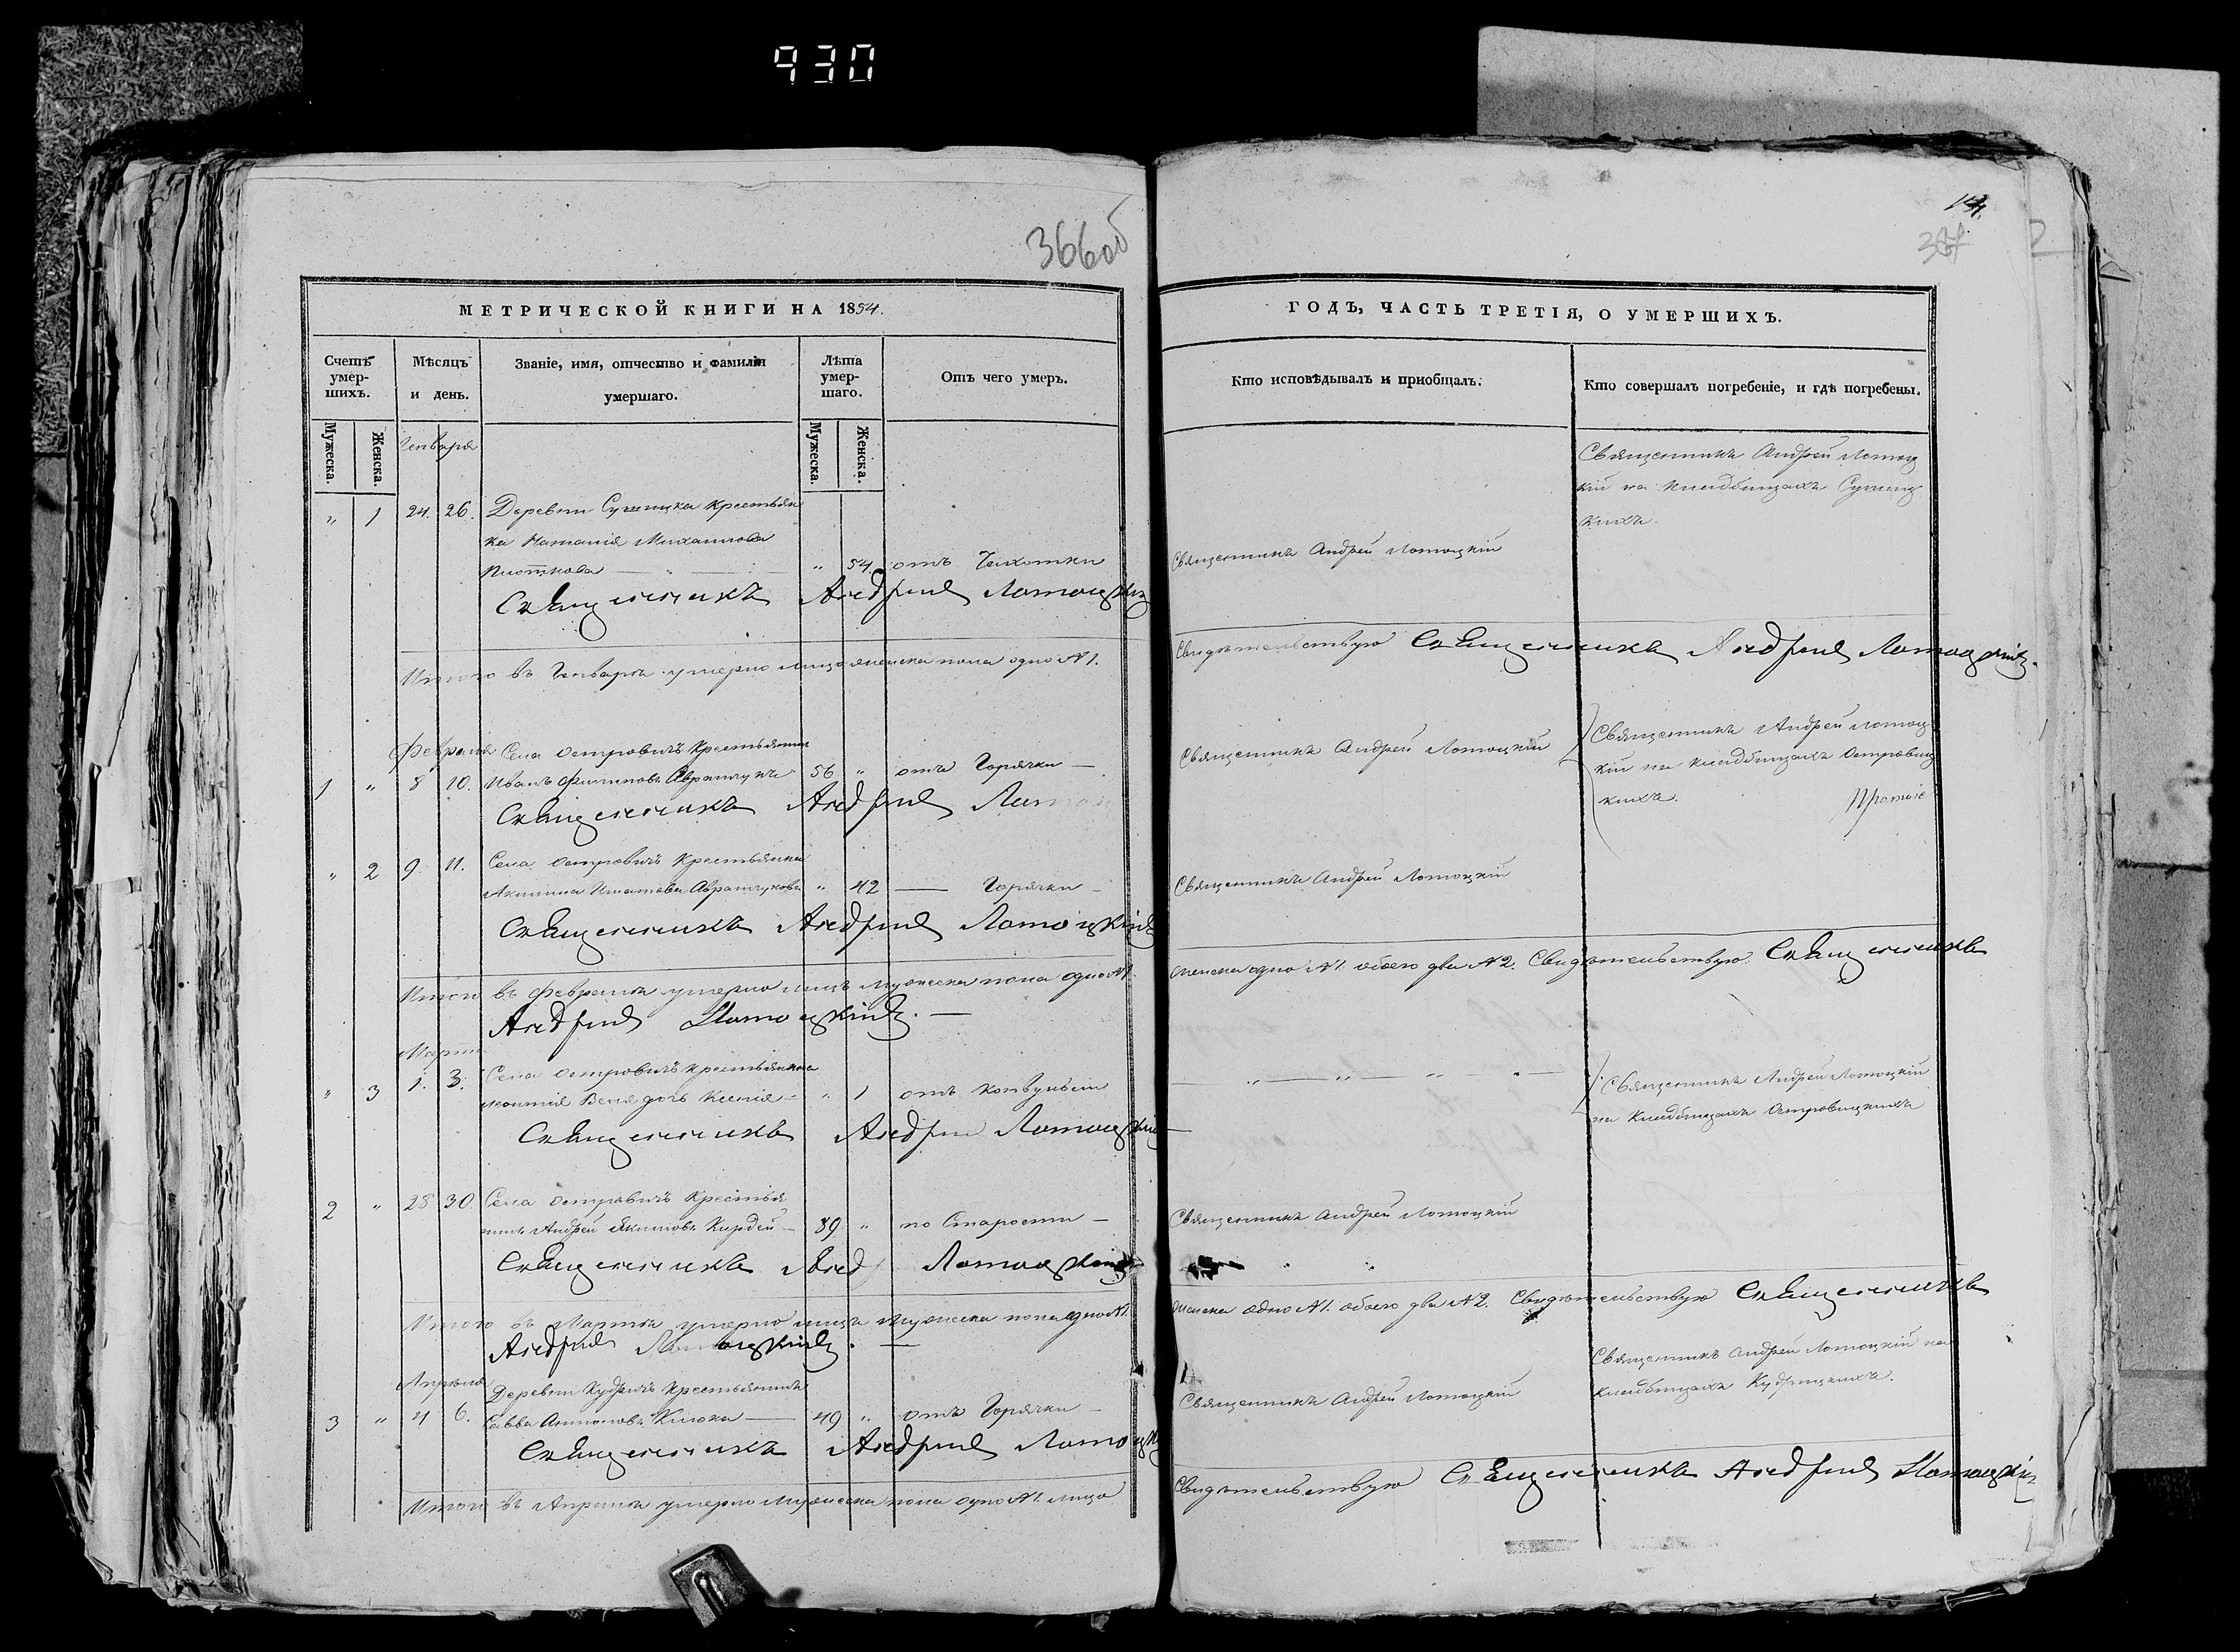 930
366об
МЕТРИЧЕСКОЙ КНИГИ НА 1854.
Счетъ умер-шихъ.
Мѣсяцъ и день.
Званіе, имя, отчество и фамилія умершаго.
Лѣта умер-шаго.
Отъ чего умеръ.
Мужеска.
Женска.
Мужеска.
Женска.
Генваря
" 1 24. 26. Деревни Крестьян
ка Михайлова
" 54. отъ Чахотки
Священникъ Андрей Лотоцкій
Итого въ Генварѣ умерло лицо женска пола одно №1.
Февраля Села Островичъ Крестьянинъ
1 " 8 10. Иванъ Филиповъ 56 " отъ Горячки —
Священникъ Андрей
" 2 9 11. Села Островичъ Крестьянка
Акилина " 42 — Горячки —
Священникъ Андрей Лотоцкій
Итого въ Февралѣ умерло лицъ Мужеска пола одно №1.
Андрей Лотоцкій. —
Марта
" 3 1. 3. Села Островичъ крестьянина
дочь Ксенія — " 1 отъ
Священникъ Андрей Лотоцкій
2 " 28 30 Села Островичъ Крестья
нинъ Андрей Якимовъ Кирдей — 89 " по Старости —
Священникъ Лотоцкій
Итого въ Мартѣ умерло лицъ Мужеска пола одно №1.
Андрей Лотоцкій. —
Апрѣля Деревни Кудричъ Крестьянинъ
3 " 4 6. Савва Антоновъ — 49 " отъ Горячки —
Священникъ Андрей
Итого въ Апрѣлѣ умерло Мужеска пола одно №1. лицо
ГОДЪ, ЧАСТЬ ТРЕТІЯ, О УМЕРШИХЪ.
Кто исповѣдывалъ и приобщалъ.
Кто совершалъ погребеніе, и гдѣ погребены.
Священникъ Андрей Лотоц
кій на кладбищахъ
Священникъ Андрей Лотоцкій
Свидѣтельствую Священникъ Андрей Лотоцкій.
Священникъ Андрей Лотоцкій
Священникъ Андрей Лотоц
кій на кладбищахъ Островиц
кихъ.
Священникъ Андрей Лотоцкій
женска одно №1. обоего два №2. Свидѣтельствую Священникъ
Священникъ Андрей Лотоцкій
на Кладбищахъ Островицкихъ
Священникъ Андрей Лотоцкій
женска одно №1. обоего два №2. Свидѣтельствую Священникъ
Священникъ Андрей Лотоцкій
Священникъ Андрей Лотоцкій на
кладбищахъ Кудрицкихъ.
Свидѣтельствую Священникъ Андрей Лотоцкій